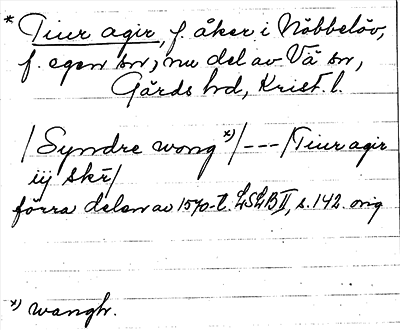 * Tiur agir, f. åker i Nöbbelöv,
f. egen sn, nu del av Vä sn,
Gärds hd, Krist. l.
/Syndre wong *)/---/Tiur agir
iij skr/
förra delen av 1570-t. LSLB II, s. 142 orig
*) wangh.